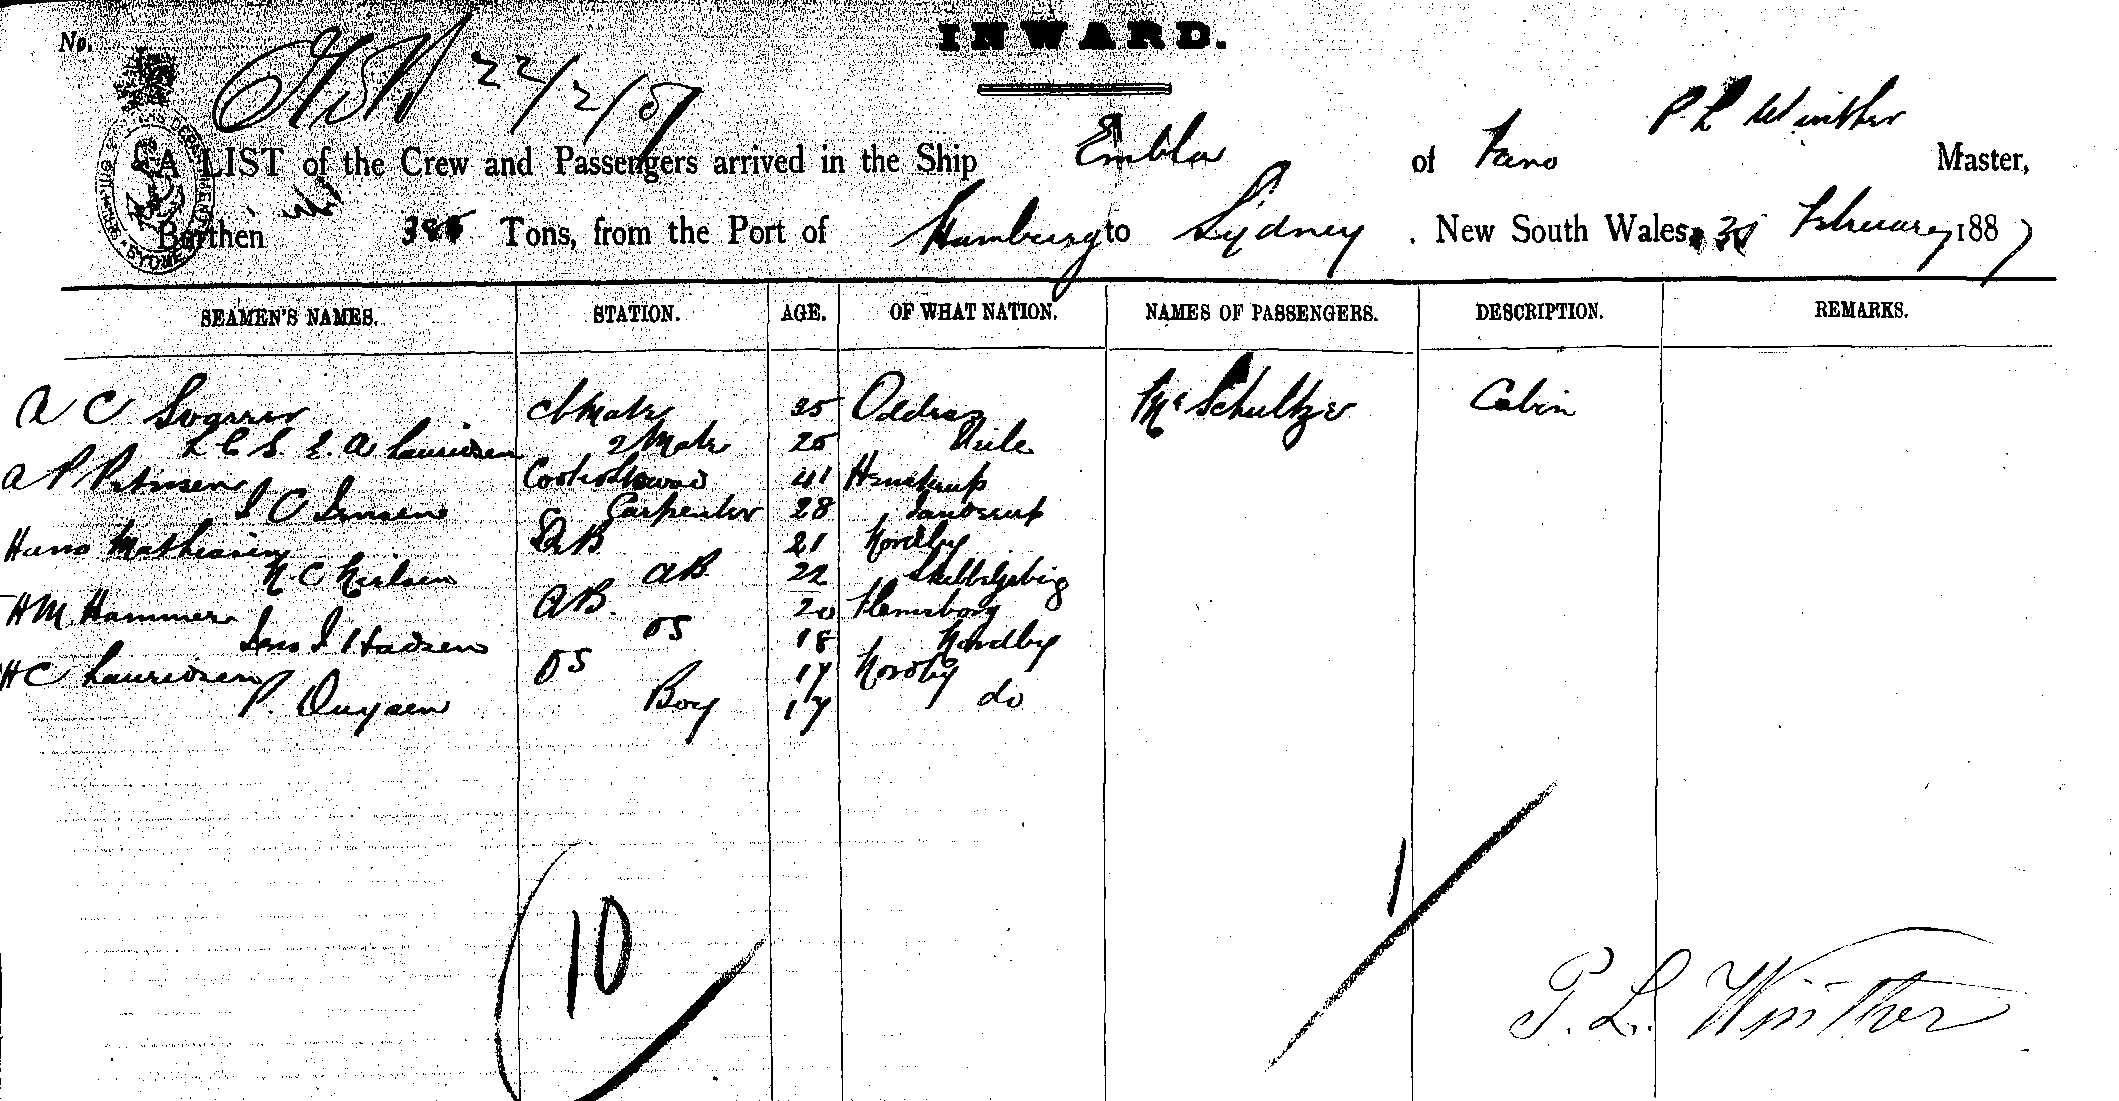 No.
INWARD.
22/2/87
P L Winther
A LIST of the Crew and Passengers arrived in the Ship Embla of Fano Master,
Burthen Tons, from the Port of Hamburg to Sydney . New South Wales, February 1887
SEAMEN'S NAMES. STATION. AGE. OF WHAT NATION. NAMES OF PASSENGERS. DESCRIPTION. REMARKS.
A C Ch Mate 25 Mr Schultze Cabin
L C S. E. A Lauridsen 2 Mate 25 Veile
A P Petersen Cook & Steward 41
I C Jensen Carpenter 28
Hans Mathiasen AB 21 Nordby
N. C Nielsen AB. 22
H M Hammer AB. 20 Flensborg
Jens I Hadsen OS 18 Nordby
H C Lauridsen OS 17 Nordby
P. Boy 17 do
10
1
P. L. Winther